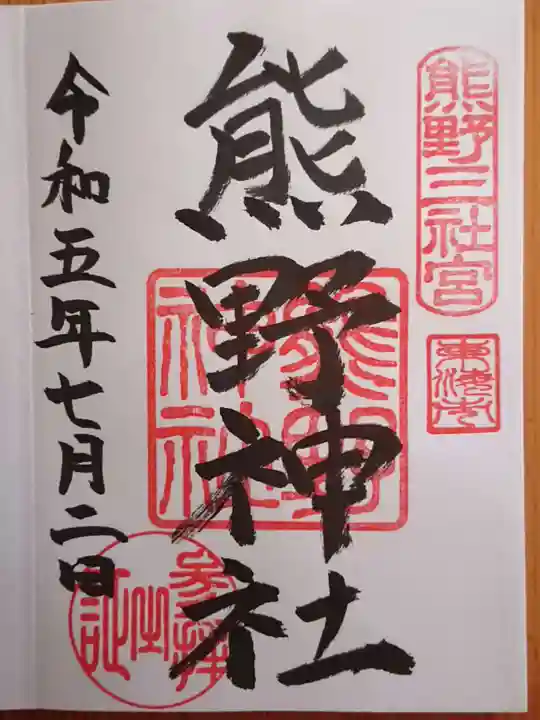 熊野三社宮
東海市
熊野神社
熊野神社
参拝之証
令和五年七月二日